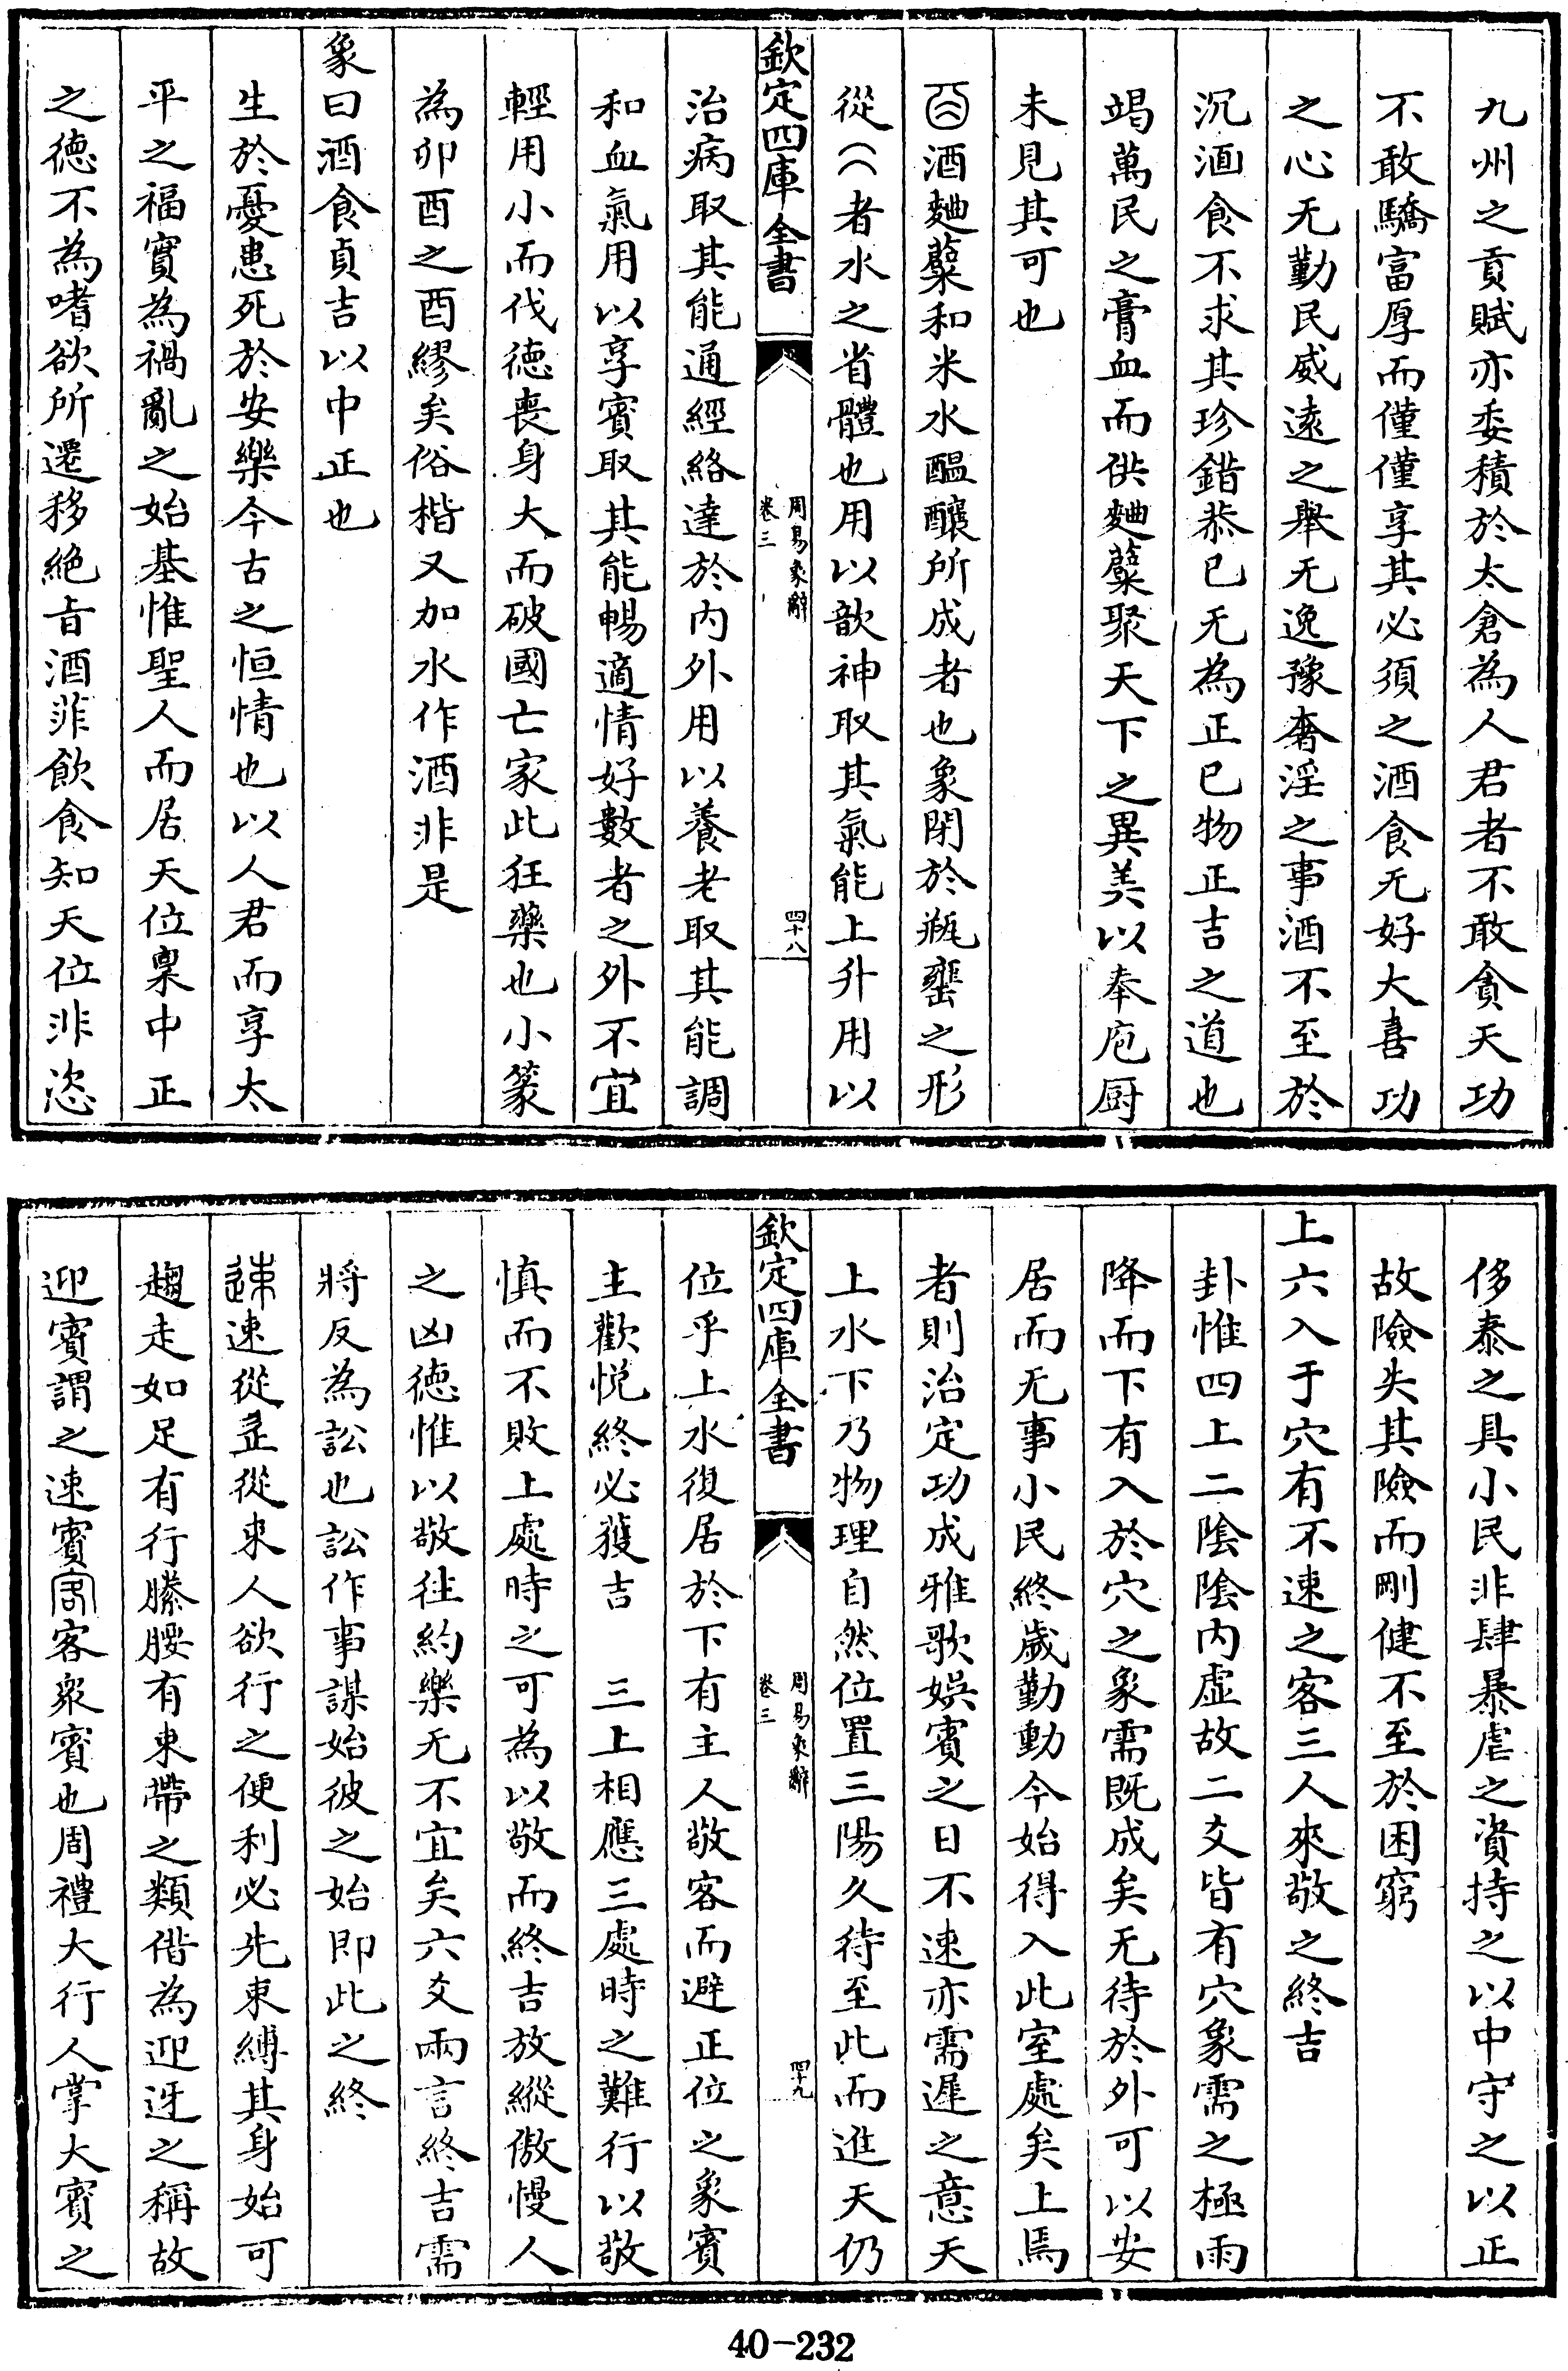 九州之貢賦亦委積於太倉為人君者不敢貪天功
不敢驕富厚而僅僅享其必須之酒食无好大喜功
之心无勤民威遠之舉无逸豫奢淫之事酒不至於
沉湎食不求其珍錯恭已无為正已物正吉之道也
竭萬民之膏血而供麯糵聚天下之異美以奉庖厨
未見其可也
酒麯糵和米水醖釀所成者也象閉於瓶罋之形
從者水之省體也用以歆神取其氣能上升用以
欽定四庫全書
周易象辭
卷三
四十八
治病取其能通經絡達於内外用以養老取其能調
和血氣用以享賓取其能暢適情好數者之外不宜
輕用小而伐徳喪身大而破國亡家此狂藥也小篆
為夘酉之酉繆矣俗楷又加水作酒非是
象曰酒食貞吉以中正也
生於憂患死於安樂今古之恒情也以人君而享太
平之福實為禍亂之始基惟聖人而居天位稟中正
之徳不為嗜欲所遷移絶旨酒菲飲食知天位非恣
侈泰之具小民非肆暴虐之資持之以中守之以正
故險失其險而剛健不至於困窮
上六入于穴有不速之客三人來敬之終吉
卦惟四上二陰陰内虚故二爻皆有穴象需之極雨
降而下有入於穴之象需既成矣无待於外可以安
居而无事小民終歲勤動今始得入此室處矣上焉
者則治定功成雅歌娯賓之日不速亦需遲之意天
上水下乃物理自然位置三陽久待至此而進天仍
欽定四庫全書
周易象辭
卷三
四十九
位乎上水復居於下有主人敬客而避正位之象賓
主歡悦終必獲吉　三上相應三處時之難行以敬
慎而不敗上處時之可為以敬而終吉放縱傲慢人
之凶徳惟以敬徃約樂无不宜矣六爻兩言終吉需
將反為訟也訟作事謀始彼之始即此之終
速從辵從朿人欲行之便利必先束縛其身始可
趨走如足有行縢腰有束帶之類借為迎迓之稱故
迎賓謂之速賓客衆賓也周禮大行人掌大賓之
40-232